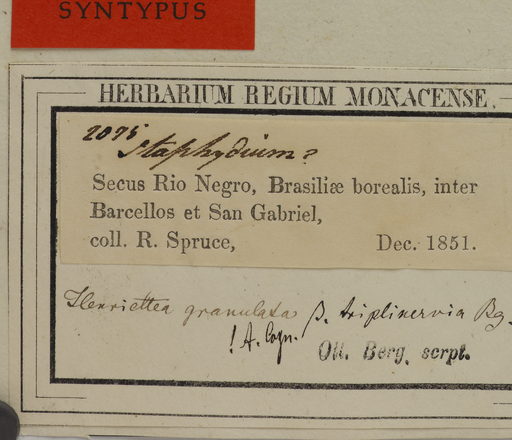 SYNTYPUS
HERBARIUM REGIUM MONACENSE.
2075
Staphydium?
Secus Rio Negro, Brasiliæ borealis, inter
Barcellos et San Gabriel,
coll. R. Spruce, Dec. 1851.
Henriettea granulata β. triplinervia Bg.
! A. Cogn.
Ott. Berg. scrpt.